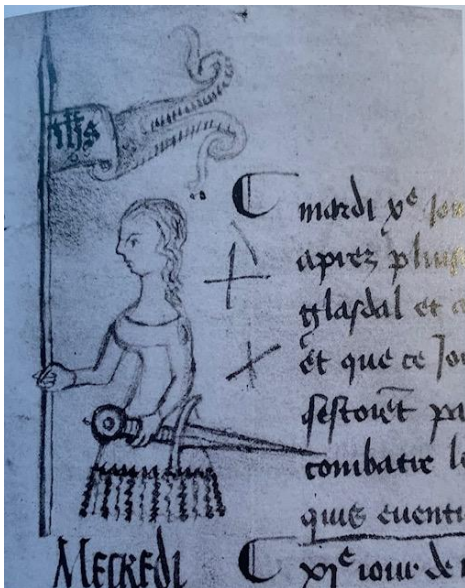 ihs
mardi xe jou
aprez pluis
glasdal et c
Et que ce Jou
sestoiēt pa
combatre le
quis eventu
MECREDI
xje jour de